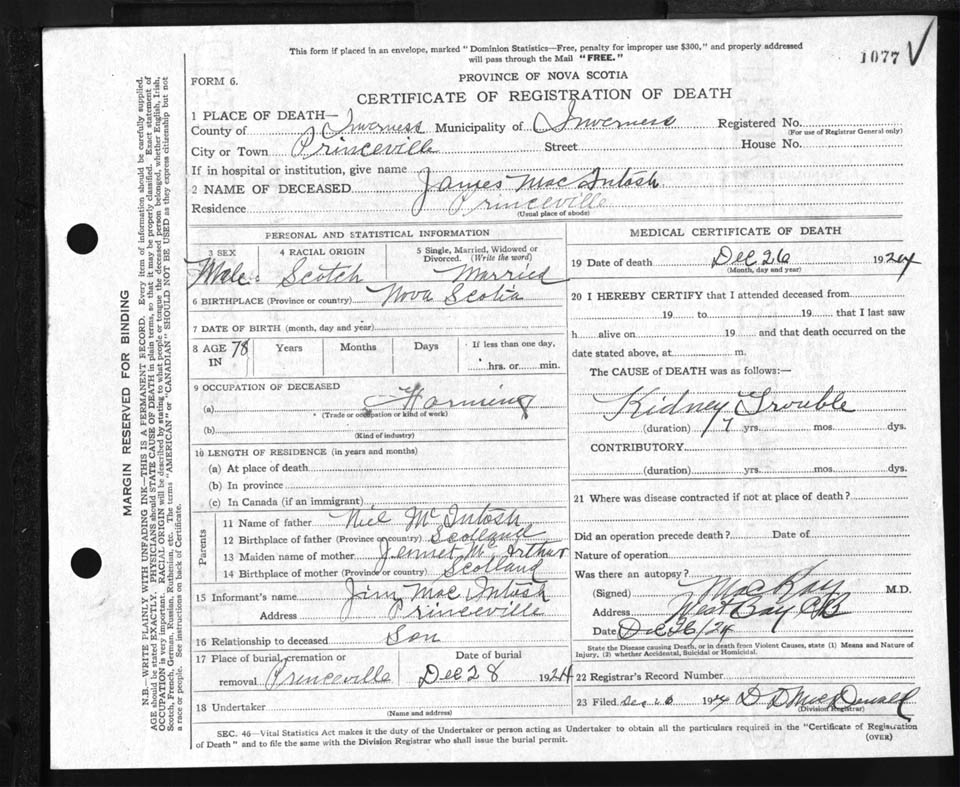 This form if placed in an envelope, marked "Dominion Statistics—Free, penalty for improper use $300," and properly addressed
will pass through the Mail "FREE."
1077 V
FORM 6.
PROVINCE OF NOVA SCOTIA
CERTIFICATE OF REGISTRATION OF DEATH
1 PLACE OF DEATH—
County of Inverness Municipality of Inverness Registered No.
(For use of Registrar General only)
City or Town Princeville Street House No.
If in hospital or institution, give name
2 NAME OF DECEASED James Mac Intosh
Residence Princeville
(Usual place of abode)
PERSONAL AND STATISTICAL INFORMATION
3 SEX 4 RACIAL ORIGIN 5 Single, Married, Widowed or Divorced. (Write the word)
Male Scotch Married
6 BIRTHPLACE (Province or country) Nova Scotia
7 DATE OF BIRTH (month, day and year)
8 AGE IN 78 Years Months Days If less than one day,
hrs. or min.
9 OCCUPATION OF DECEASED
(a) Farming
(Trade or occupation or kind of work)
(b)
(Kind of industry)
10 LENGTH OF RESIDENCE (in years and months)
(a) At place of death
(b) In province
(c) In Canada (if an immigrant)
Parents
11 Name of father Niel McIntosh
12 Birthplace of father (Province or country) Scotland
13 Maiden name of mother Jennet McArthur
14 Birthplace of mother (Province or country) Scotland
15 Informant's name Jim Mac Intosh
Address Princeville
16 Relationship to deceased Son
17 Place of burial, cremation or removal Princeville Date of burial Dec 28 1924
18 Undertaker
(Name and address)
MEDICAL CERTIFICATE OF DEATH
19 Date of death Dec 26 1924
(Month, day and year)
20 I HEREBY CERTIFY that I attended deceased from
19 to 19 that I last saw
h alive on 19 and that death occurred on the
date stated above, at m.
The CAUSE of DEATH was as follows:—
Kidney Trouble
(duration) 7 yrs. mos. dys.
CONTRIBUTORY.
(duration) yrs. mos. dys.
21 Where was disease contracted if not at place of death?
Did an operation precede death? Date of
Nature of operation
Was there an autopsy?
(Signed) MacKay M.D.
Address West Bay CB
Date Dec 26/24
State the Disease causing Death, or in death from Violent Causes, state (1) Means and Nature of
Injury, (2) whether Accidental, Suicidal or Homicidal.
22 Registrar's Record Number
23 Filed Dec 1924 D D MacDonald
(Division Registrar)
SEC. 46—Vital Statistics Act makes it the duty of the Undertaker or person acting as Undertaker to obtain all the particulars required in the "Certificate of Registration
of Death" and to file the same with the Division Registrar who shall issue the burial permit.
(OVER)
MARGIN RESERVED FOR BINDING
N.B.—WRITE PLAINLY WITH UNFADING INK—THIS IS A PERMANENT RECORD. Every item of information should be carefully supplied.
AGE should be stated EXACTLY. PHYSICIANS should STATE CAUSE OF DEATH in plain terms, so that it may be properly classified. Exact statement of
OCCUPATION is very important. RACIAL ORIGIN will be described by stating to what people or tongue the deceased person belonged, whether English, Irish,
Scotch, French, German, Russian, Ruthenian, etc. The terms "AMERICAN" or "CANADIAN" SHOULD NOT BE USED as they express citizenship but not
a race or people. See instructions on back of Certificate.